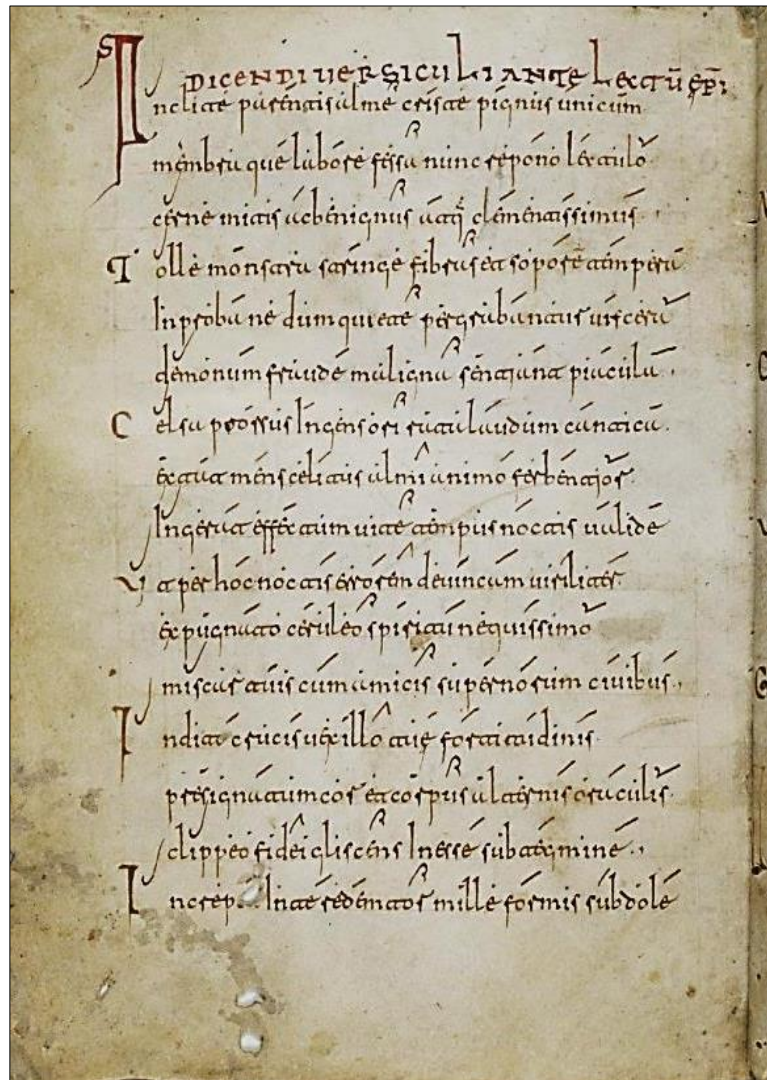 DICENDI VERSICULI ANTE LECTŪ EPI
Inclite parentis alme criste pignus unicum
membra que labore fessa nunc repono lectulo
cerne mitis ac benignus atq clementissimus
Tolle monstra stringe fibras et sopore tempera
Inproba ne dum quiete pergrabantus viscera
demonum fraude maligna sentiant piacula
Celsa prossus Ingens ori ructa laudum cantica
extat mens celitus almi animo ferbentior
Ingerat effectum vite tempus noctis valide
Ut per hoc noctis erorem devincam viriliter
expugnato ceruleo spiritu nequissimo
miscar tuis cum amicis supernorum civibus
Indita crucis vexillo tue fortitudinis
persignatum cor et corpus alternis oraculis
clippeo fidei gliscens Inesse sub termine
Inte redemtor mille formis subdole